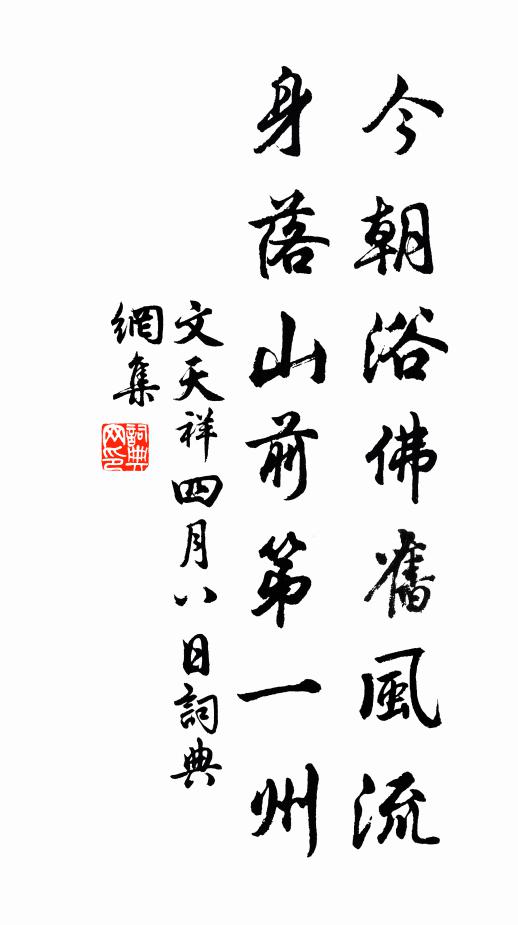 今朝浴佛舊風流
身落山前第一州
文天祥四月八日詞典
網集
詞典
网印